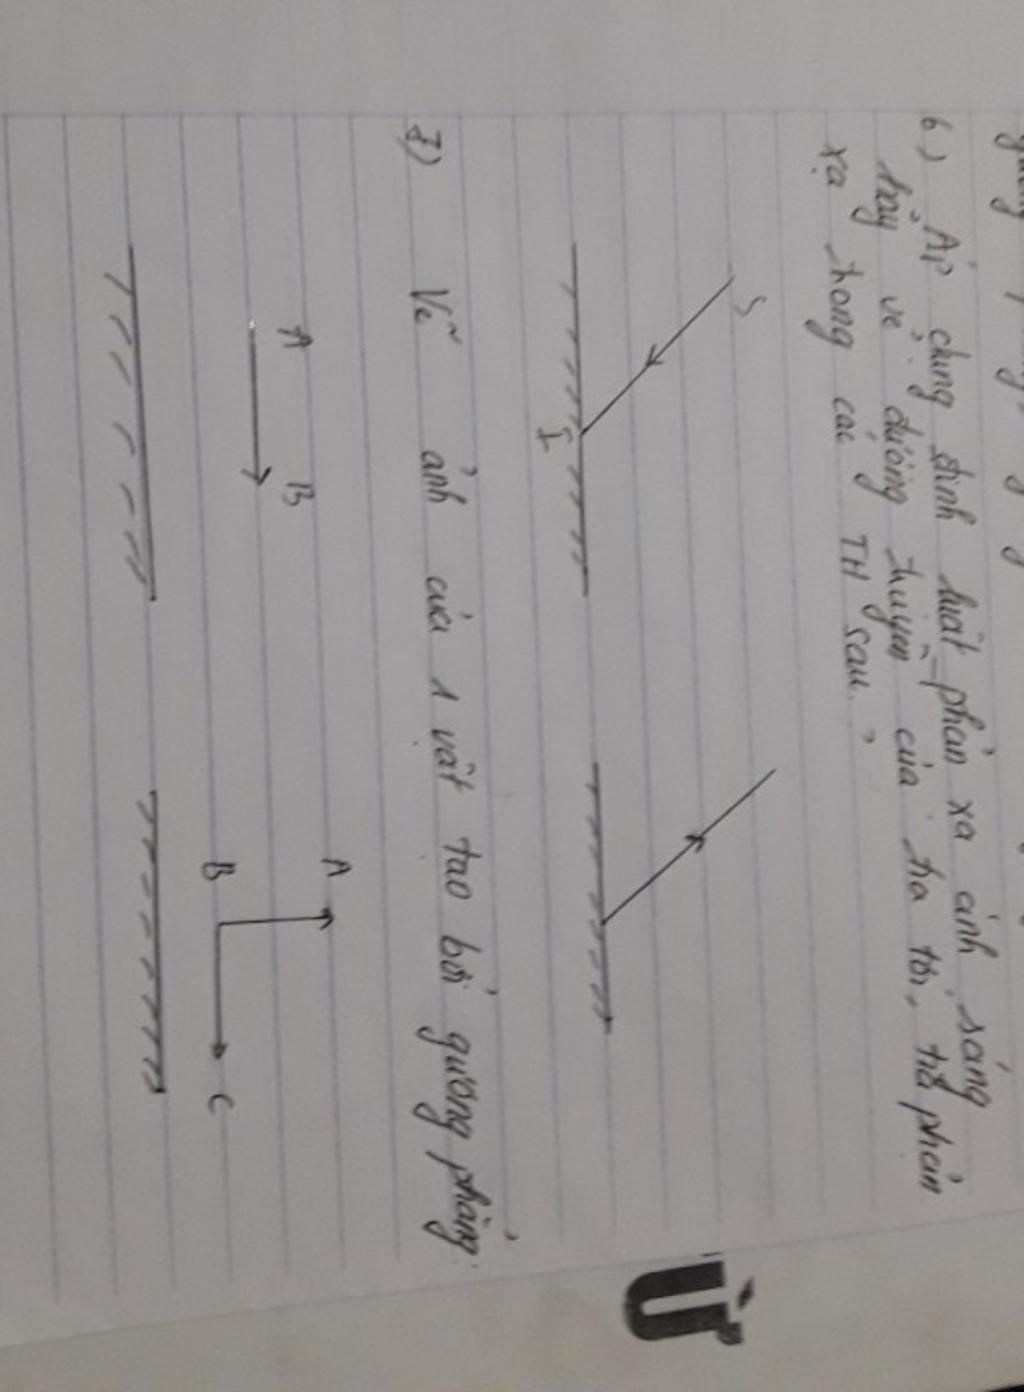 6) Áp dụng định luật phản xạ ánh sáng
hãy vẽ đường truyền của tia tới, tia phản
xạ trong các TH sau?
S
I
7) Vẽ ảnh của 1 vật tạo bởi gương phẳng.
A
B
A
B
C
Ử